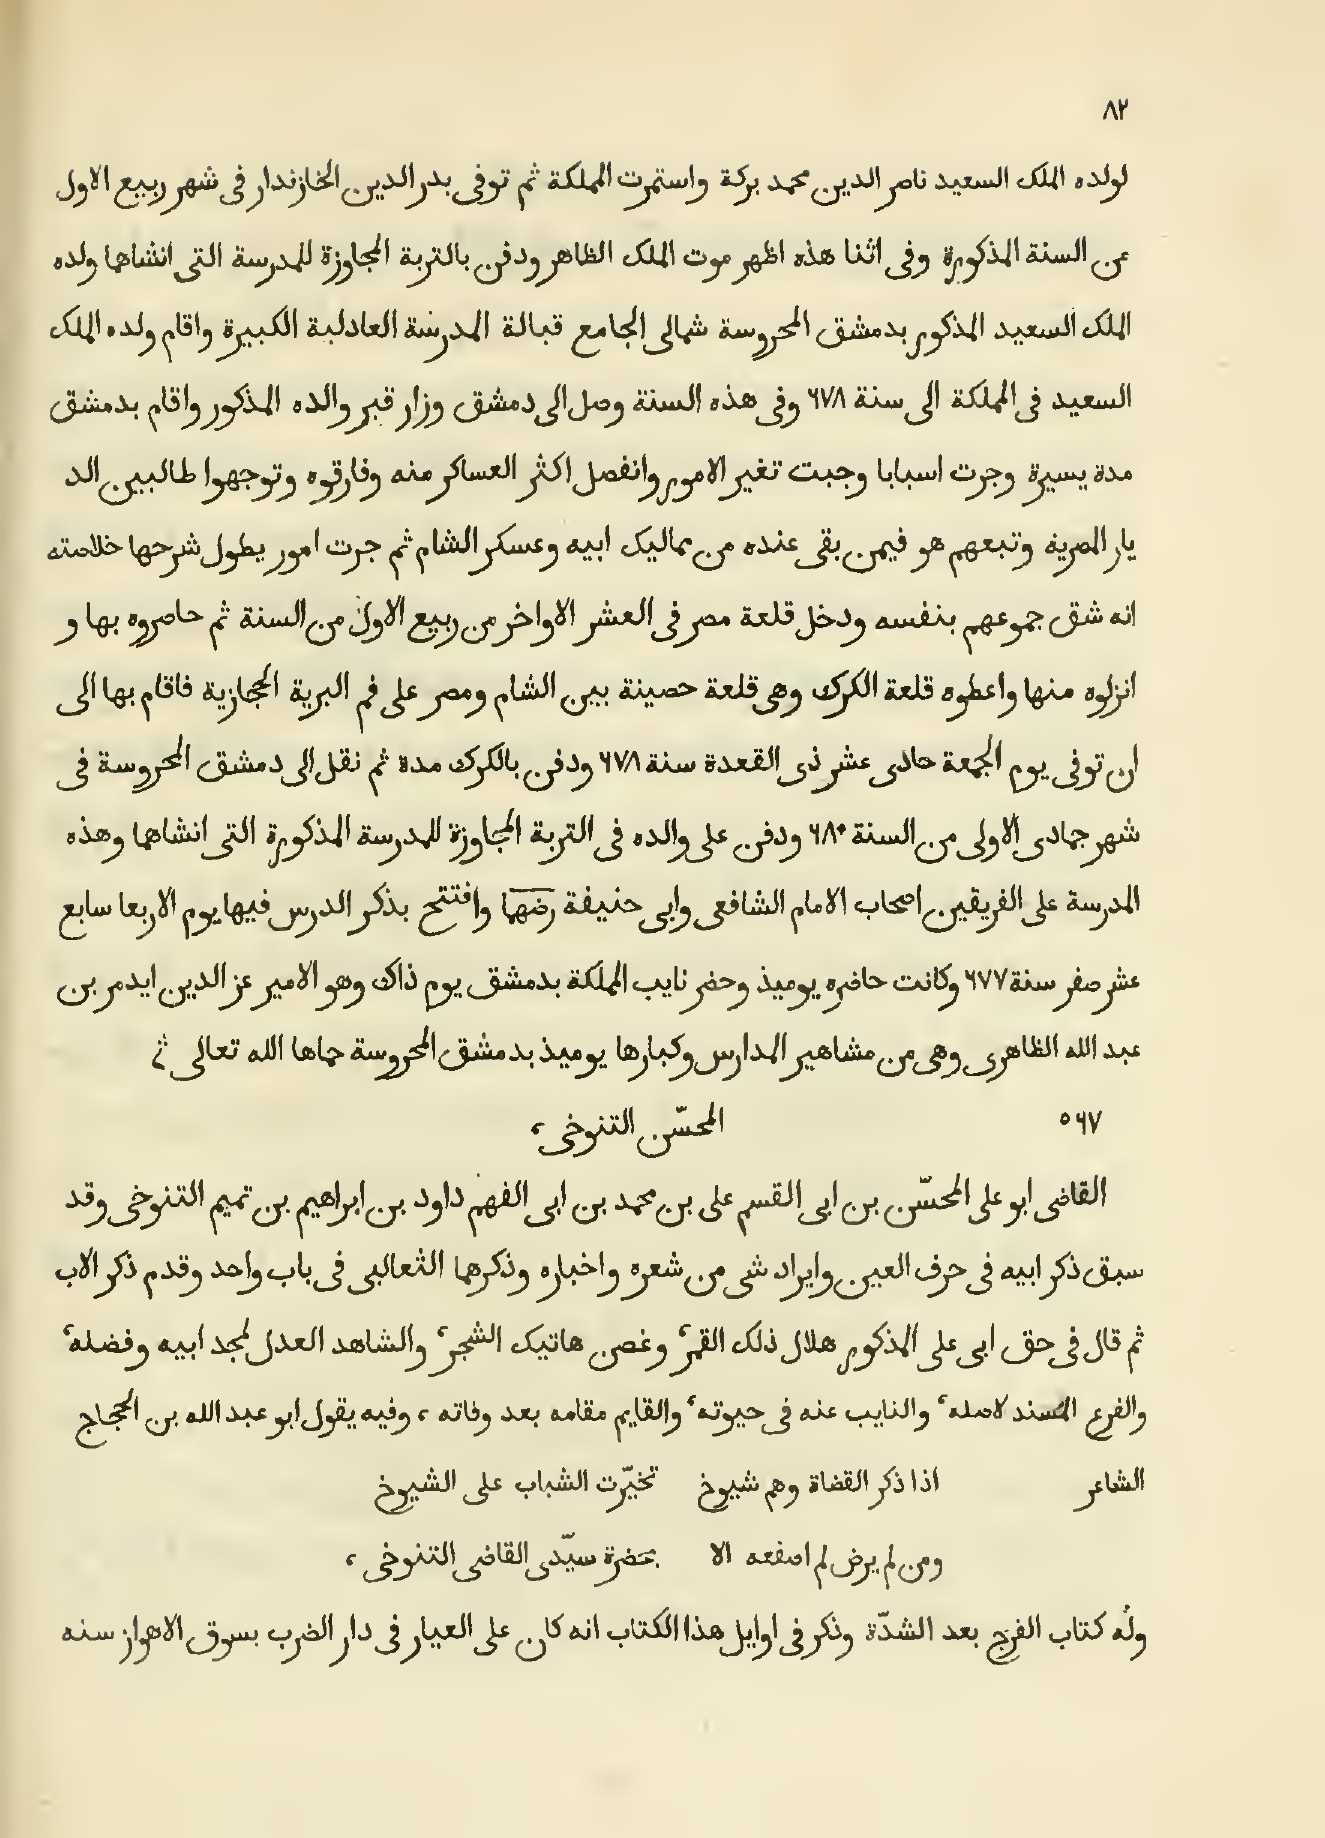 ٨٢
لولده الملك السعيد ناصر الدين محمد بركة واستمرت المملكة ثم توفى بدر الدين الخازندار فى شهر ربيع الاول
عن السنة المذكورة وفى اثنا هذه اظهر موت الملك الظاهر ودفن بالتربة المجاوزة للمدرسة التى انشاها ولده
الملك السعيد المذكور بدمشق المحروسة شمالى الجامع قبالة المدرسة العادلية الكبيرة واقام ولده الملك
السعيد فى المملكة الى سنة ٦٧٨ وفى هذه السنة وصل الى دمشق وزار قبر والده المذكور واقام بدمشق
مدة يسيرة وجرت اسبابا وجبت تغير الامور وانفصل اكثر العساكر منه وفارقوه وتوجهوا طالبين الد
يار المصرية وتبعهم هو فيمن بقى عنده من مماليك ابيه وعسكر الشام ثم جرت امور يطول شرحها خلاصته
انه شق جموعهم بنفسه ودخل قلعة مصر فى العشر الاواخر من ربيع الاول من السنة ثم حاصروه بها و
انزلوه منها واعطوه قلعة الكرك وهى قلعة حصينة بين الشام ومصر على فم البرية الحجازية فاقام بها الى
ان توفى يوم الجمعة حادى عشر ذى القعدة سنة ٦٧٨ ودفن بالكرك مدة ثم نقل الى دمشق المحروسة فى
شهر جمادى الاولى من السنة ٦٨٠ ودفن على والده فى التربة المجاوزة للمدرسة المذكورة التى انشاها وهذه
المدرسة على الفريقين اصحاب الامام الشافعى وابى حنيفة رضهما وافتتح بذكر الدرس فيها يوم الاربعا سابع
عشر صفر سنة ٦٧٧ وكانت حاضره يوميذ وحضر نايب المملكة بدمشق يوم ذاك وهو الامير عز الدين ايدمر بن
عبد الله الظاهرى وهى من مشاهير المدارس وكبارها يوميذ بدمشق المحروسة حماها الله تعالى
٥٦٧ المحسّن التنوخى،
القاضى ابو على المحسّن بن ابى القسم على بن محمد بن ابى الفهم داود بن ابراهيم بن تميم التنوخى وقد
سبق ذكر ابيه فى حرف العين وايراد شى من شعره واخباره وذكرهما الثعالبى فى باب واحد وقدم ذكر الاب
ثم قال فى حق ابى على المذكور هلال ذلك القمر، وغصن هاتيك الشجر، والشاهد العدل لمجد ابيه وفضله،
والفرع المسند لاصله، والنايب عنه فى حيوته، والقايم مقامه بعد وفاته، وفيه يقول ابو عبد الله بن الحجاج
الشاعر اذا ذكر القضاة وهم شيوخ تخيّرت الشباب على الشيوخ
ومن لم يرض لم اصفعه الا بحضرة سيّدى القاضى التنوخى،
وله كتاب الفرج بعد الشدّة وذكر فى اوايل هذا الكتاب انه كان على العيار فى دار الضرب بسوق الاهواز سنه